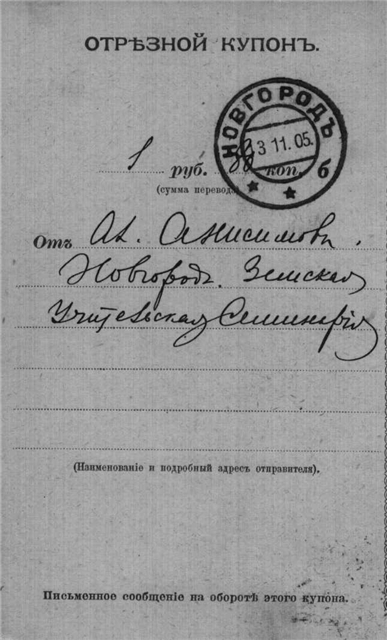 ОТРѢЗНОЙ КУПОНЪ.
НОВГОРОДЪ
3 11.05.
б
1 руб. коп.
(сумма перевода)
Отъ Ал. Анисимовъ.
Новгородъ. Земская
Учительская Семинарія
(Наименованіе и подробный адресъ отправителя).
Письменное сообщеніе на оборотѣ этого купона.